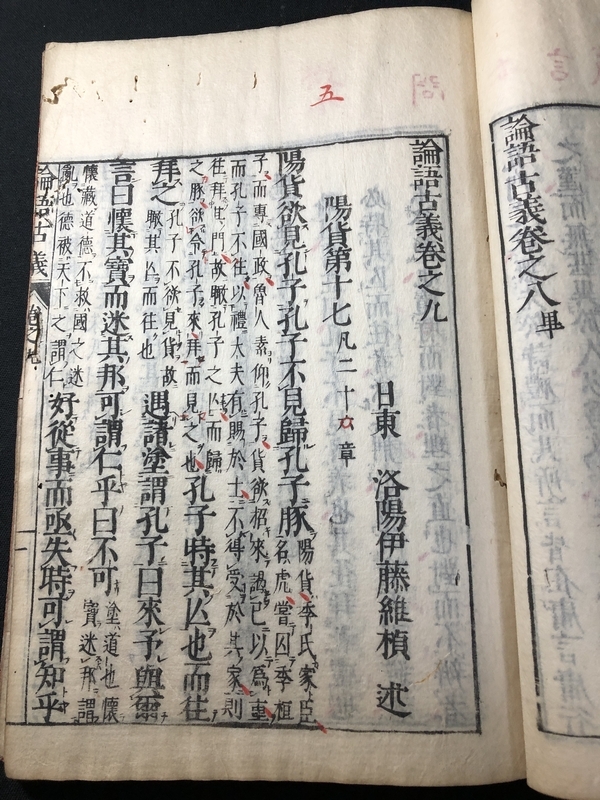 論語古義卷之八 畢
五
論語古義卷之九
日東 洛陽伊藤維楨 述
陽貨第十七 凡二十六章
陽貨欲見孔子孔子不見歸孔子豚
陽貨季氏家臣
名虎嘗囚季桓
子而專國政魯人素仰孔子貨欲招來謁己以爲重
而孔子不往以禮大夫有賜於士不得受於其家則
往拜其門故瞰孔子之亡而歸
之豚欲令孔子來拜而見之也
孔子時其亡也而往
拜之
孔子不欲見貨故
瞰其亡而往也
遇諸塗謂孔子曰來予與爾
言曰懷其寶而迷其邦可謂仁乎曰不可
塗道也懷
寶迷邦謂
懷藏道德不救國之迷
亂也德被天下之謂仁
好從事而亟失時可謂知乎
論語古義 卷之九